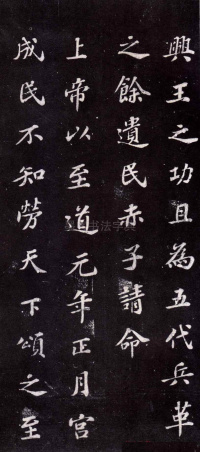 興王之功且為五代兵革
之餘遺民赤子請命
上帝以至道元年正月宮
成民不知勞天下頌之至